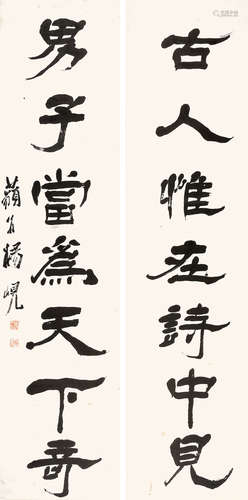 古人惟在詩中見
男子當為天下奇
藐翁楊峴